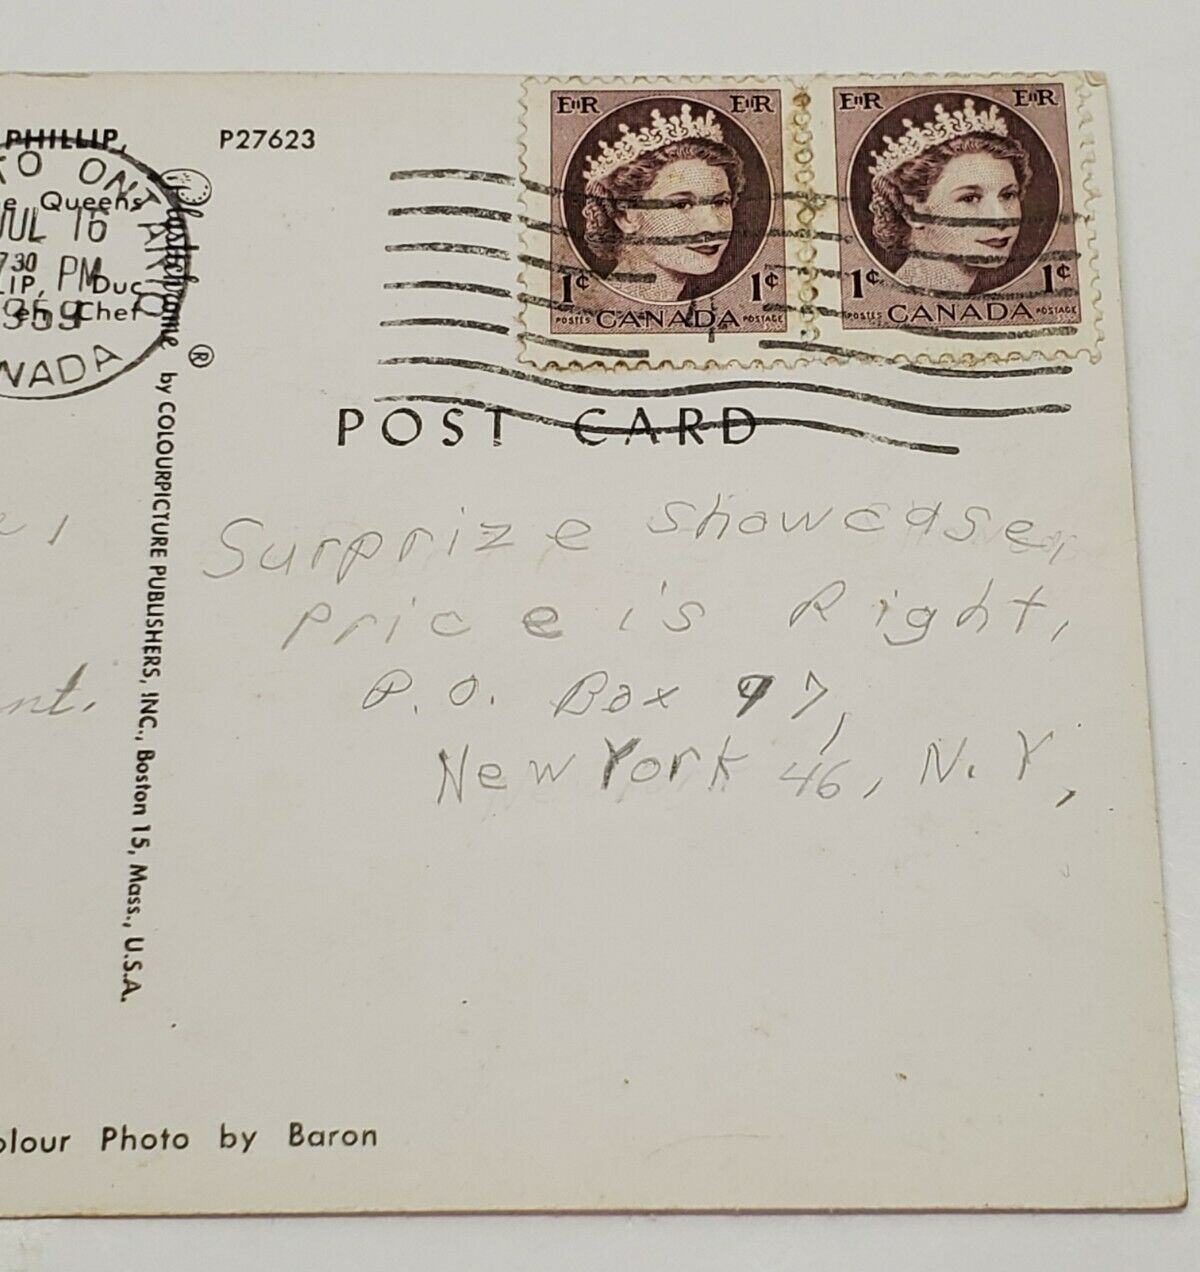 PHILLIP, P27623
TO ONTARIO
e Queens
JUL 16
730 PM
LIP, Duc
1959
en Chef
CANADA
Plastichrome ® by COLOURPICTURE PUBLISHERS, INC., Boston 15, Mass., U.S.A.
EIIR EIIR
1¢ 1¢
POSTES CANADA POSTAGE
EIIR EIIR
1¢ 1¢
POSTES CANADA POSTAGE
POST CARD
Surprize showcase,
Price is Right,
P.O. Box 97,
New York 46, N.Y,
nt.
olour Photo by Baron